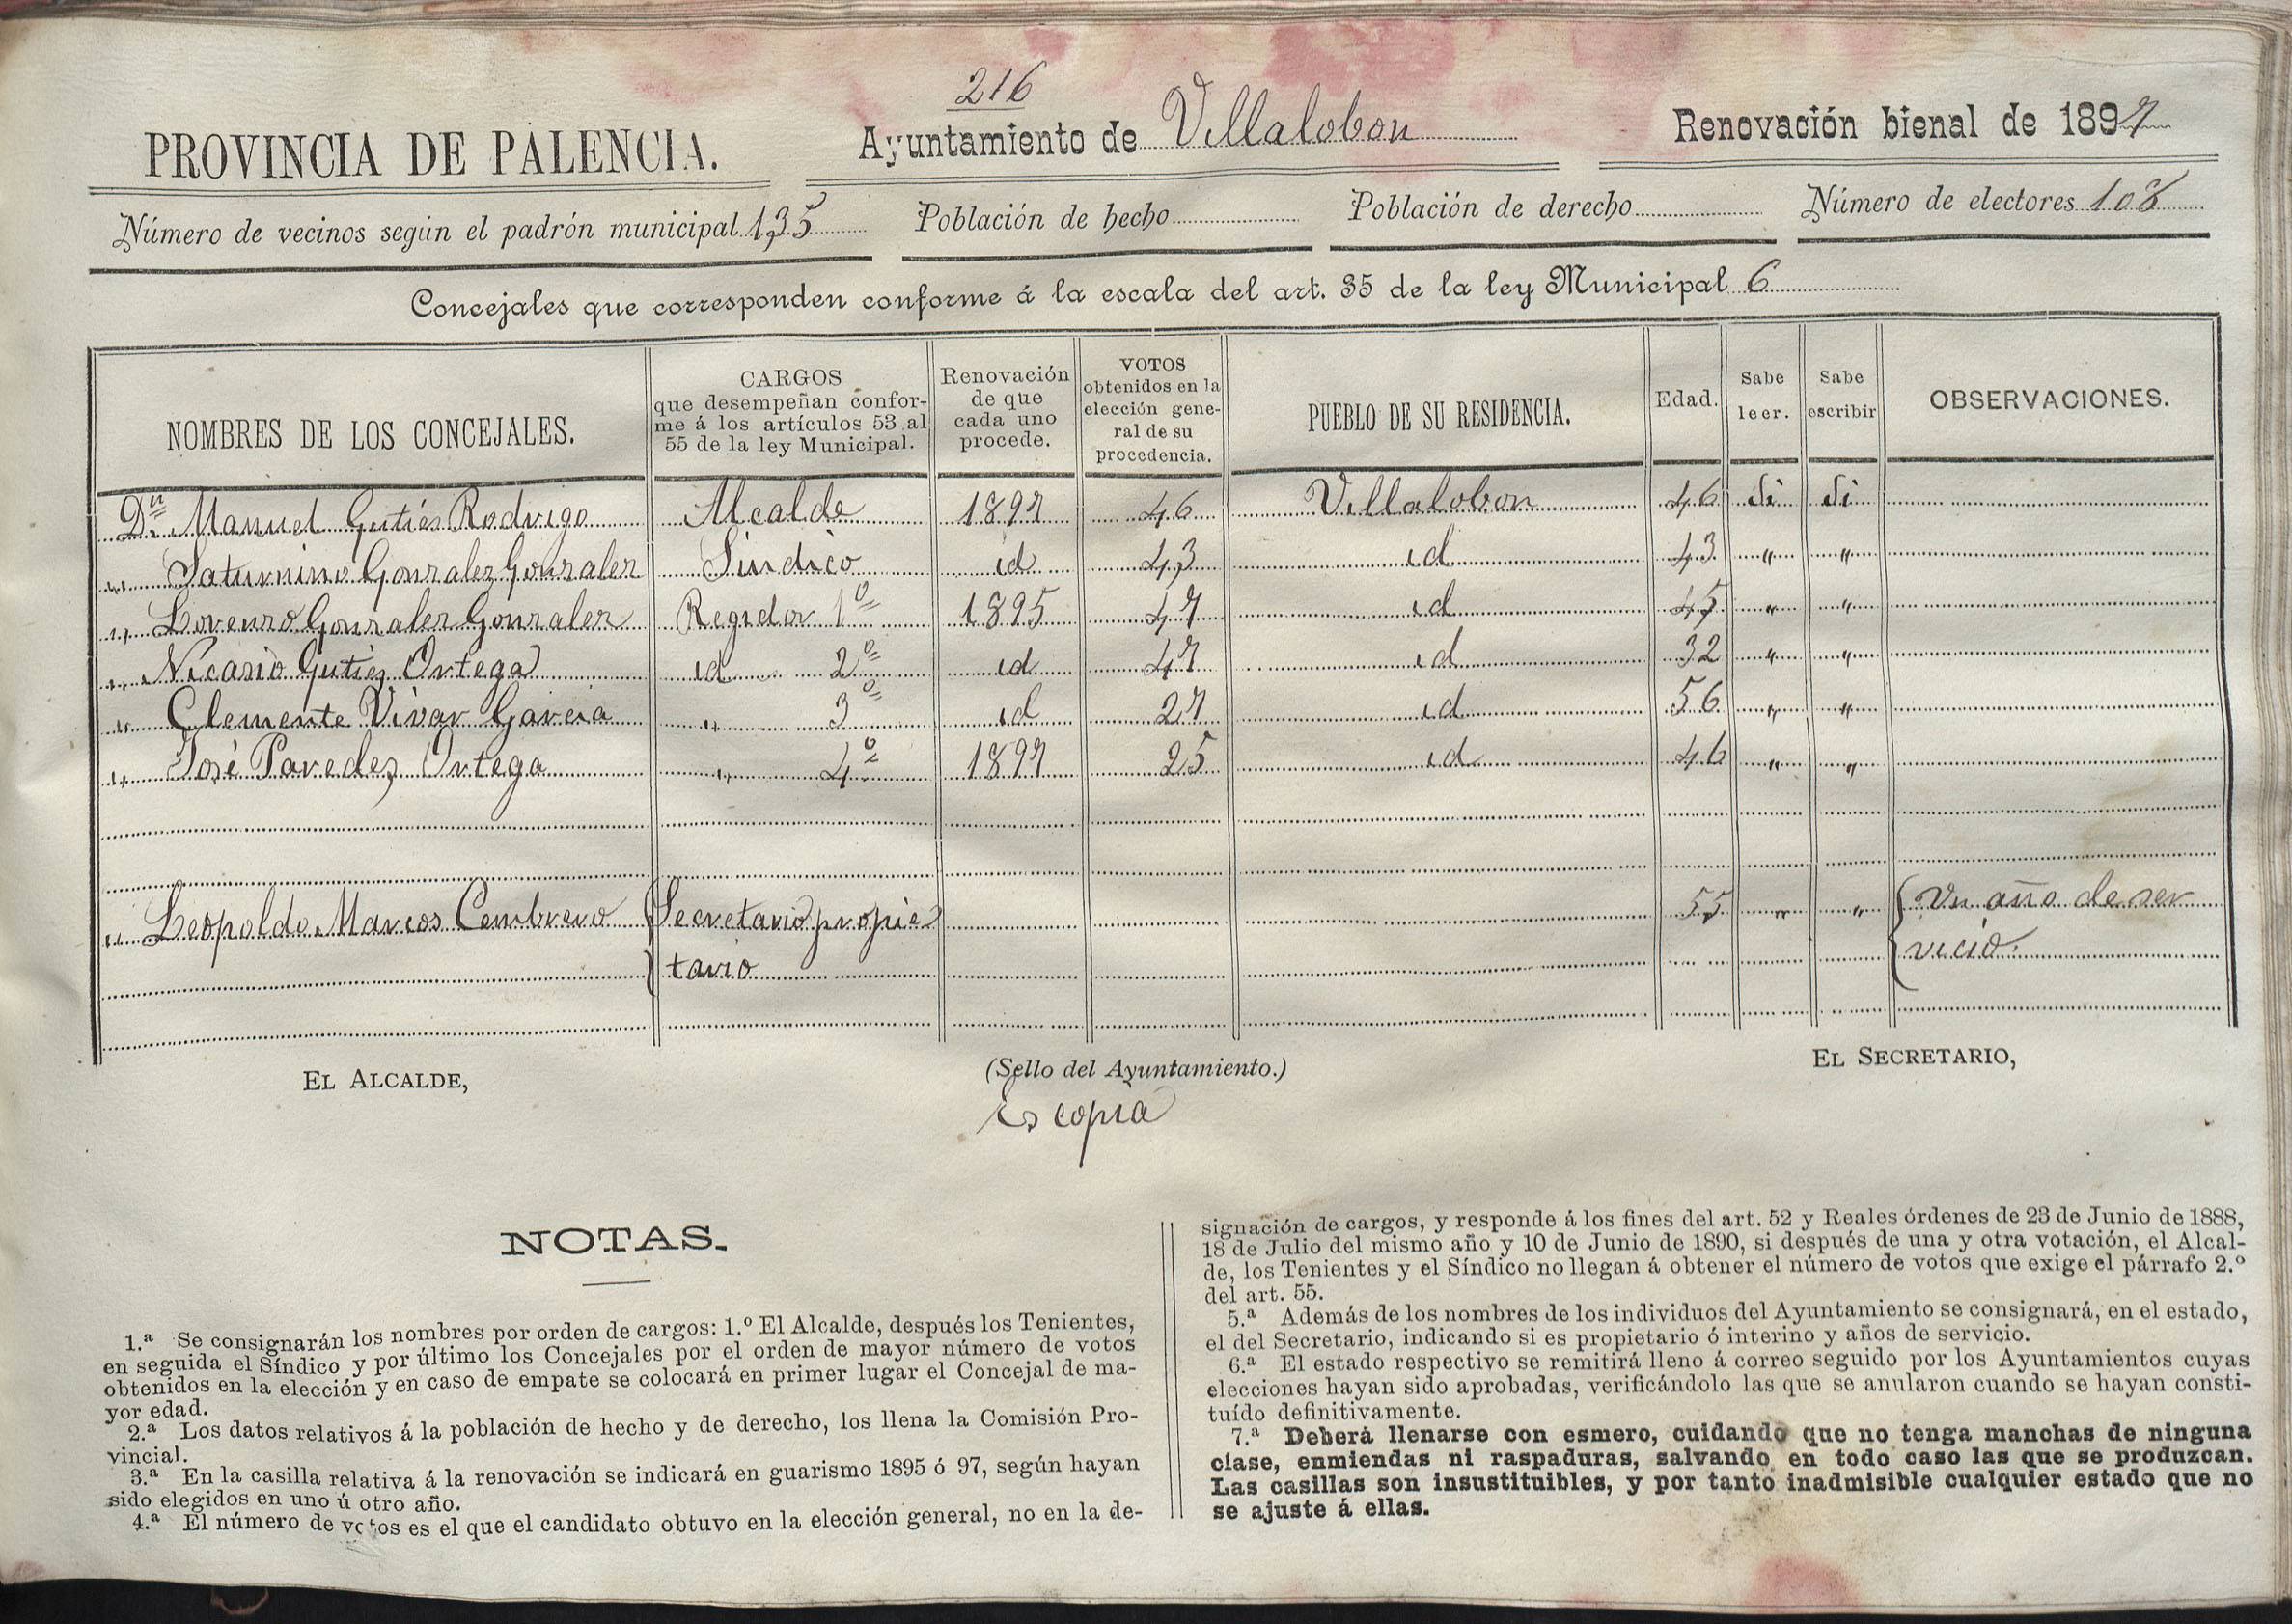 216
PROVINCIA DE PALENCIA. Ayuntamiento de Villalobon Renovación bienal de 1897
Número de vecinos según el padrón municipal 135 Población de hecho Población de derecho Número de electores 108
Concejales que corresponden conforme á la escala del art. 35 de la ley Municipal 6
NOMBRES DE LOS CONCEJALES. CARGOS que desempeñan confor-me á los artículos 53 al 55 de la ley Municipal. Renovación de que cada uno procede. VOTOS obtenidos en la elección gene-ral de su procedencia. PUEBLO DE SU RESIDENCIA. Edad. Sabe leer. Sabe escribir OBSERVACIONES.
Dn. Manuel Gutiés Rodrigo Alcalde 1897 46 Villalobon 46 Si Si
" Saturnino Gonzalez Gonzalez Sindico id 43 id 43 " "
" Lorenzo Gonzalez Gonzalez Regidor 1º 1895 47 id 45 " "
" Nicasio Gutiez Ortega id 2º id 47 id 32 " "
" Clemente Vivar Garcia " 3º id 27 id 56 " "
" José Paredes Ortega " 4º 1897 25 id 46 " "
" Leopoldo Marcos Cembrero Secretario propie 55 " " Un año de ser
tario vicio.
EL ALCALDE, (Sello del Ayuntamiento.) EL SECRETARIO,
Es copia
NOTAS.
1.ª Se consignarán los nombres por orden de cargos: 1.º El Alcalde, después los Tenientes,
en seguida el Síndico y por último los Concejales por el orden de mayor número de votos
obtenidos en la elección y en caso de empate se colocará en primer lugar el Concejal de ma-
yor edad.
2.ª Los datos relativos á la población de hecho y de derecho, los llena la Comisión Pro-
vincial.
3.ª En la casilla relativa á la renovación se indicará en guarismo 1895 ó 97, según hayan
sido elegidos en uno ú otro año.
4.ª El número de votos es el que el candidato obtuvo en la elección general, no en la de-
signación de cargos, y responde á los fines del art. 52 y Reales órdenes de 23 de Junio de 1888,
18 de Julio del mismo año y 10 de Junio de 1890, si después de una y otra votación, el Alcal-
de, los Tenientes y el Síndico no llegan á obtener el número de votos que exige el párrafo 2.º
del art. 55.
5.ª Además de los nombres de los individuos del Ayuntamiento se consignará, en el estado,
el del Secretario, indicando si es propietario ó interino y años de servicio.
6.ª El estado respectivo se remitirá lleno á correo seguido por los Ayuntamientos cuyas
elecciones hayan sido aprobadas, verificándolo las que se anularon cuando se hayan consti-
tuído definitivamente.
7.ª Deberá llenarse con esmero, cuidando que no tenga manchas de ninguna
clase, enmiendas ni raspaduras, salvando en todo caso las que se produzcan.
Las casillas son insustituibles, y por tanto inadmisible cualquier estado que no
se ajuste á ellas.